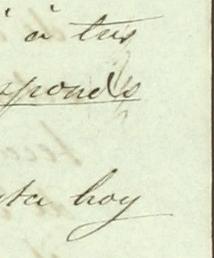 á tus
sponds
sta hoy